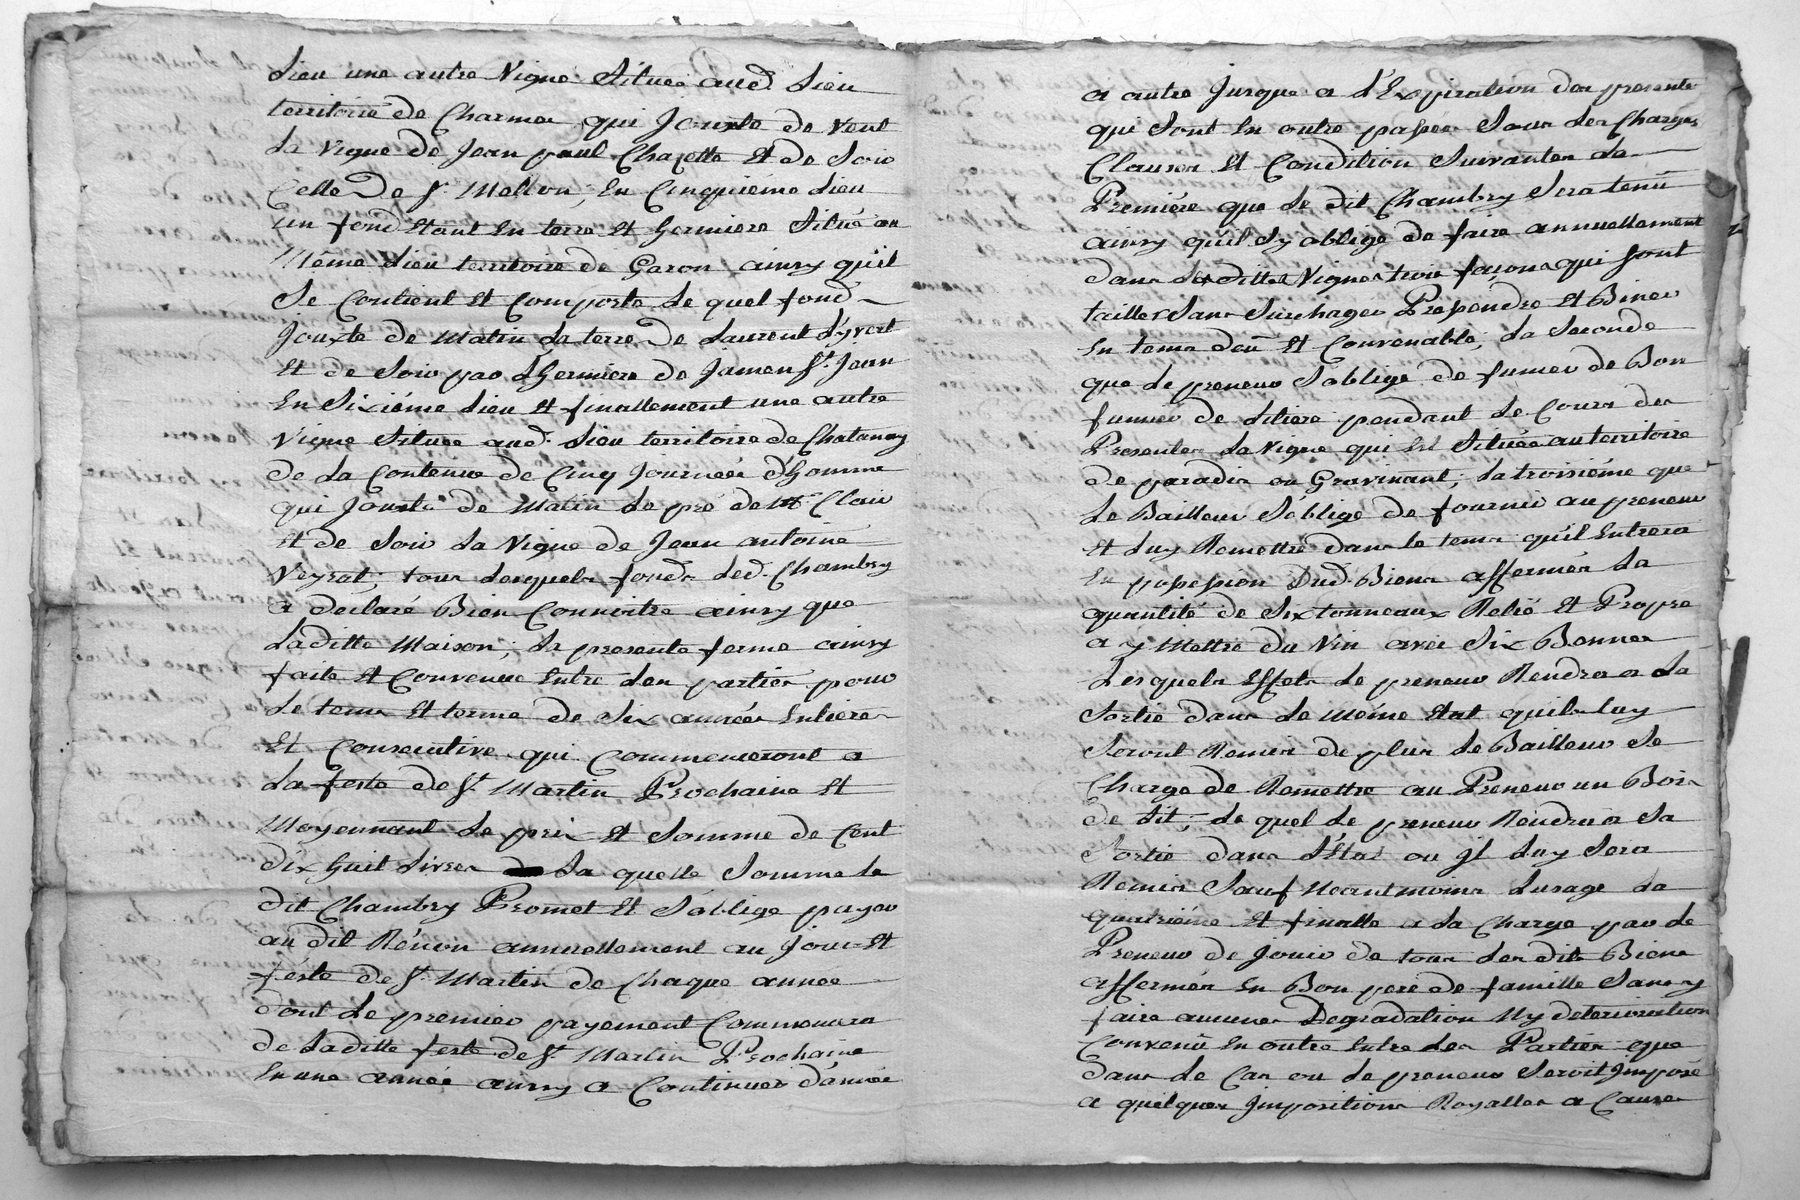 Lieu une autre Vigne Situeé aud. Lieu
territoire de Charmes qui Jouxte de vent
La vigne de Jean paul Chazette Et de Soir
Celle De Sr. Mellon; En Cinquiéme Lieu
un fond Etant En terre Et hermiere Situé au
Même Lieu territoire de Garon ainsy quil
Se Contient Et Comporte Le quel fond
Jouxte de Matin La terre De Laurent
Et de Soir par L'hermiere de Jamen St. Jean
En Sixiéme Lieu Et finallement une autre
Vigne Situee aud. Lieu territoire de Chatanay
de La Contenue de Cinq Journeés d'homme
qui Jouxte de Matin Le pré de Mr. Clair
Et de Soir La Vigne de Jean antoine
Veyrat; tous Lesquels fonds Led. Chambry
a declaré Bien Connoitre ainsy que
Laditte Maison; La presente ferme ainsy
faite Et Convenue Entre Les parties pour
Le tems Et terme de Six anneés Entieres
Et Consecutive qui Commenceront a
La feste de St. Martin Prochaine Et
Moyennant Le prix Et Somme de Cent
dix huit Livres La quelle Somme Le
dit Chambry Promet Et S'oblige payer
au dit Rénon annuellement au Jour Et
féste de St. Martin de Chaque année
dont Le premier payement Commencera
de Laditte feste de St. Martin Prochaine
En une anneé ainsy a Continuer d'année
a autre Jusque a L'Expiration des presente
qui Sont En outre passées Sous Les Charges
Clauses Et Condition Suivantes La
Premiére que Le dit Chambry Sera tenu
ainsy quil Sy oblige de faire annuellement
dans Les dittes Vignes trois façons qui Sont
tailler Sans Surchager Prependre Et Biner
En tems deü Et Convenable; La Seconde
que Le preneur S'oblige de fumer de Bon
fumier de Litiere pendant Le Cours des
Presentes La Vigne qui Est Situéeauterritoire
de paradis ou Gravinant; La troisiéme que
Le Bailleur S'oblige de fournir au preneur
Et Luy Remettre dans le tems quil Entrera
En possession Dud. Biens affermés La
quantité de Six tonneaux Relié Et Propre
a y Mettre du Vin avec Six Bennes
Lesquels Effets Le preneur Rendra a La
Sortie dans Le Même Etat quils Luy
Seront Remis de plus Le Bailleur Se
Charge de Remettre au Preneur un Bois
de Lit; Le quel Le preneur Rendra a Sa
Sortie dans L'Etat ou Jl Luy Sera
Remis Sauf Neantmoins Lusage La
quatriéme Et finalle a La Charge par Le
Preneur de Jouir de tous Les dits Biens
affermés En Bon pere de famille Sans y
faire aucunes Degradation Ny deterioration
Convenu En outre Entre Les Parties que
dans Le Cas ou Le preneur Seroit Imposé
a quelques Jmpositions Royalles a Causes